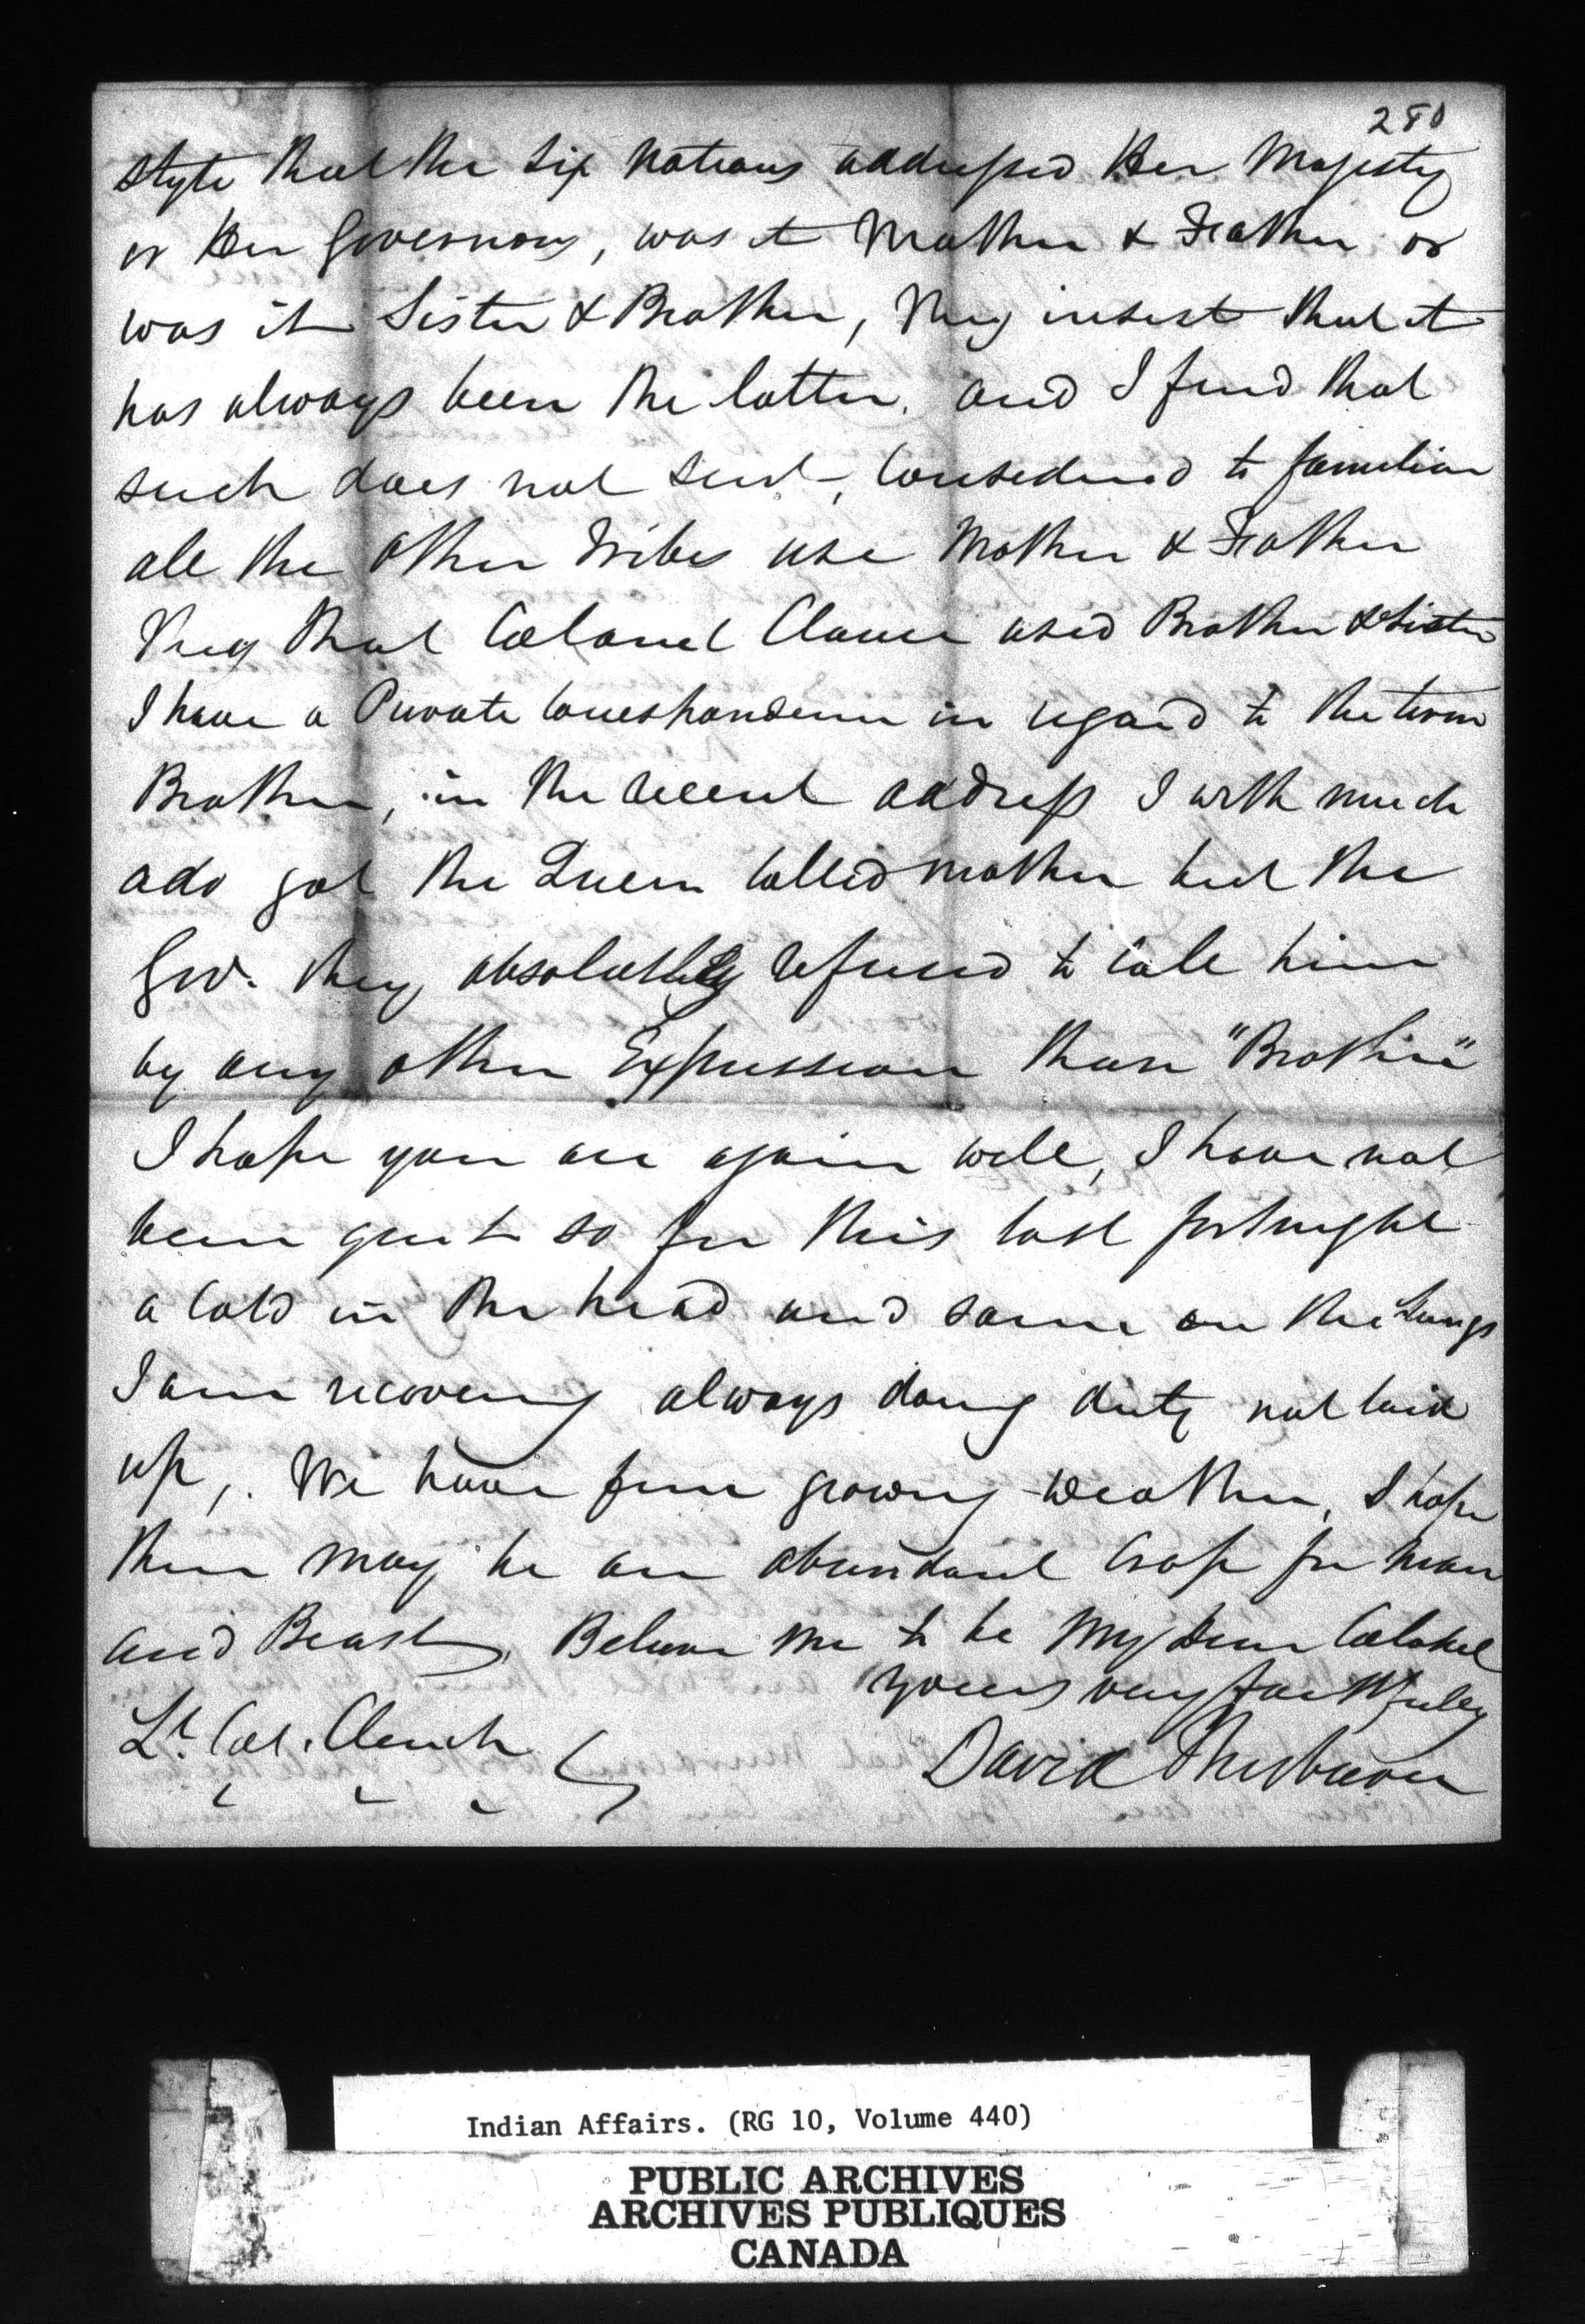 280
style that the Six Nations addressed Her Majesty
or Her Governors, was it Mother & Feather or
was it Sister & Brother, They insist that it
has always been the latter, and I find that
such does not suit, considered to familiar
all the other Tribes use Mother & Feather
They that Colonel Clause used Brother & Sister
I have a Private correspondence in regard to the term
Brother, in the recent address I with much
ado got the Queen called mother but the
Gov. they absolutely refused to call him
by any other Expression than "Brother"
I hope you are again well, I have not
been quit so for this last fortnight
a Cold in the head and some on the Lungs
I am recovering always doing duty not laid
up, We have fine growing weather, I hope
there may be an abundant Crop for man
and Beast, Believe me to be My Dear Colonel
yours very faithfully
Lt. Col. Clench
David Thorburn
Indian Affairs. (RG 10, Volume 440)
PUBLIC ARCHIVES
ARCHIVES PUBLIQUES
CANADA